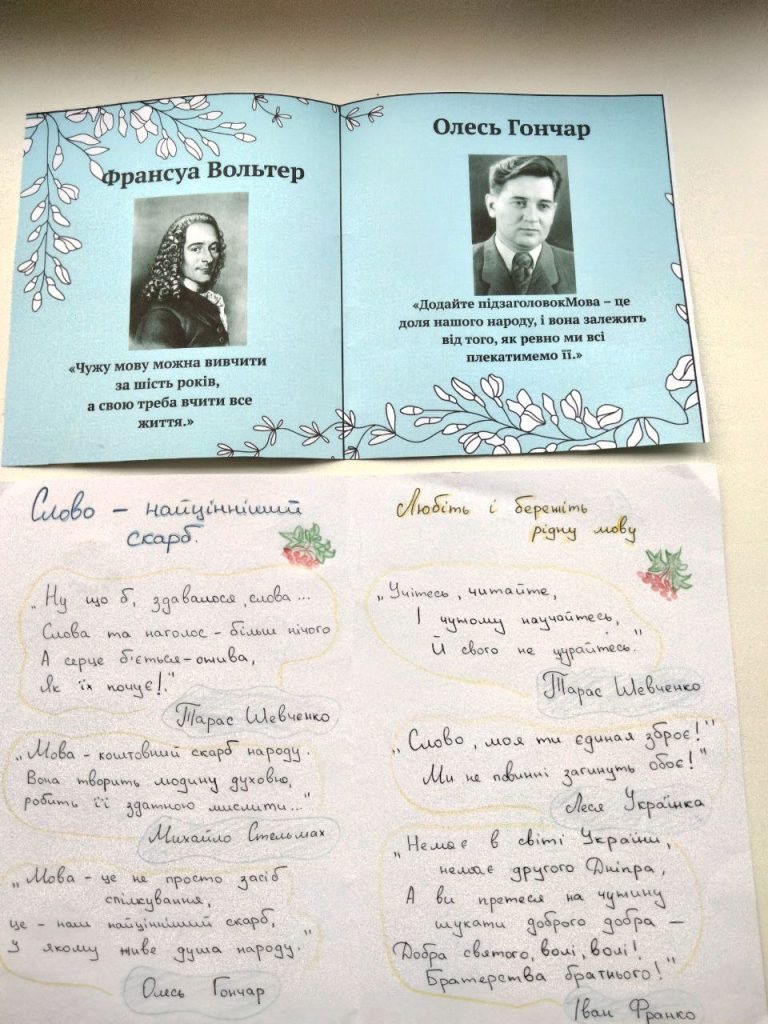 Франсуа Вольтер
«Чужу мову можна вивчити
за шість років,
а свою треба вчити все
життя.»
Олесь Гончар
«Додайте підзаголовокМова – це
доля нашого народу, і вона залежить
від того, як ревно ми всі
плекатимемо її.»
Слово – найцінніший
скарб.
„Ну що б, здавалося, слова...
Слова та наголос – більш нічого
А серце б'ється – ожива,
Як їх почує!."
Тарас Шевченко
„Мова – коштовний скарб народу.
Вона творить людину духовно,
робить її здатною мислити..."
Михайло Стельмах
„Мова – це не просто засіб
спілкування,
це – наш найцінніший скарб,
У якому живе душа народу."
Олесь Гончар
Любіть і бережіть
рідну мову
„Учітесь, читайте,
І чужому научайтесь,
Й свого не цурайтесь."
Тарас Шевченко
„Слово, моя ти єдиная зброє!"
Ми не повинні загинуть обоє!"
Леся Українка
„Немає в світі України,
немає другого Дніпра,
А ви претеся на чужину
шукати доброго добра –
Добра святого, волі, волі!
Братерства братнього!"
Іван Франко